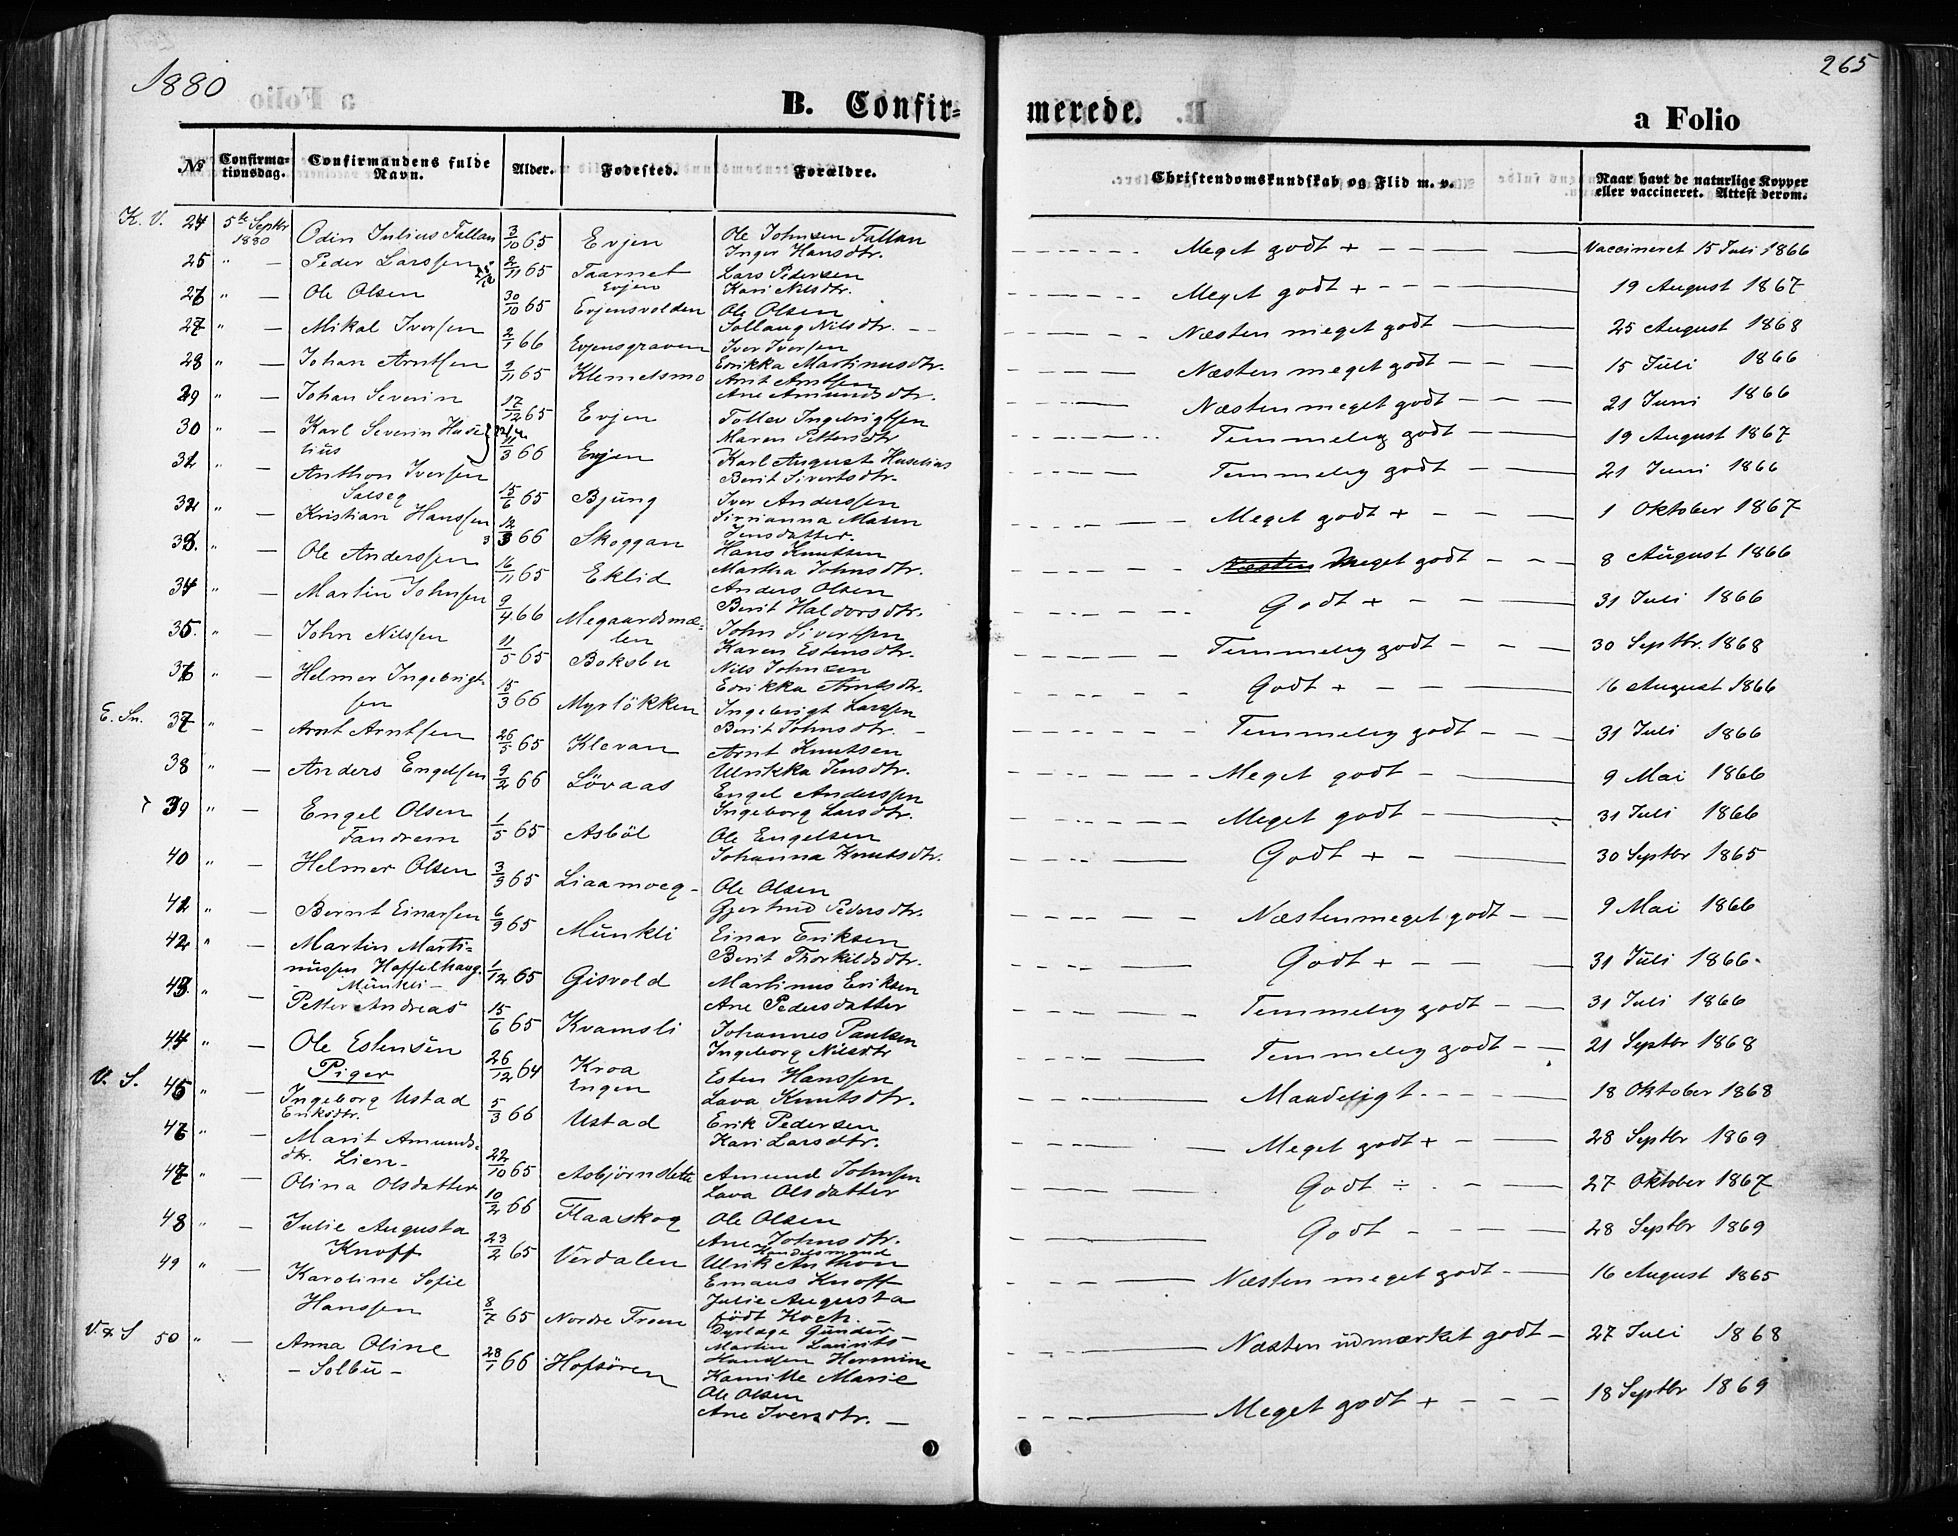 1880
265
B. Confir-
merede.
a Folio
№
Confirma-
tionsdag.
Confirmandens fulde
Navn.
Alder.
Fødested.
Forældre.
Christendomskundskab og Flid m. v.
Naar havt de naturlige Kopper
eller vaccineret. Attest derom.
K. V. 24 5te Septbr 1880 Odin Julius Fallan 3/10 65 Evjen Ole Johnsen Fallan
Inger Hansdtr.
Meget godt + Vaccineret 15 Juli 1866
25 " — Peder Larssen 2/11 65 Taarnet
Evjen
Lars Pedersen
Kari Nilsdtr.
Meget godt + 19 August 1867
26 " — Ole Olsen 30/10 65 Evjensvolden Ole Olsen
Sollaug Nilsdtr.
Næsten meget godt 25 August 1868
27 " — Mikal Iversen 2/1 66 Evjensgraven Iver Iversen
Erikka Martinusdtr.
Næsten meget godt 15 Juli 1866
28 " — Johan Arntsen 9/11 65 Klemetsmo Arnt Arntsen
Ane Amundsdtr.
Næsten meget godt 21 Juni 1866
29 " — Johan Severin 17/12 65 Evjen Toller Ingebrigtsen
Maren Pettersdtr
Temmelig godt 19 August 1867
30 " — Karl Severin Huse
lius
11/3 66 Evjen Karl August Huselius
Berit Sivertsdtr.
Temmelig godt 21 Juni 1866
31 " — Anthon Iversen
Salseg
15/6 65 Bjung Iver Anderssen
Sirianna Maren
Jensdatter.
Meget godt + 1 Oktober 1867
32 " — Kristian Hanssen 12/3 66 Skoggan Hans Knutsen
Martha Johnsdtr.
Næsten Meget godt 8 August 1866
33. " — Ole Anderssen 16/11 65 Eklid Anders Olsen
Berit Haldorsdtr.
Godt + 31 Juli 1866
34 " — Martin Johnsen 9/4 66 Megaardsmæ-
len
John Sivertsen
Karen Estensdtr.
Temmelig godt 30 Septbr. 1868
35. " — John Nilssen 11/5 65 Boksbu Nils Johnsen
Erikka Arntsdtr.
Godt + 16 August 1866
36 " — Helmer Ingebrigt-
sen
15/3 66 Myrløkken Ingebrigt Larssen
Berit Johnsdtr.
Temmelig godt 31 Juli 1866
E. Sn. 37 " — Arnt Arntsen 26/5 65 Klevan Arnt Knutsen
Ulrikka Jensdtr.
Meget godt 9 Mai 1866
38 " — Anders Engelsen 9/2 66 Løvaas Engel Anderssen
Ingeborg Larsdtr.
Meget godt 31 Juli 1866
39 " — Engel Olsen
Fandrem
1/5 65 Asbøl Ole Engelsen
Johanna Knutsdtr.
Godt + 30 Septbr 1865
40 " — Helmer Olsen 3/3 65 Liaamoeg Ole Olsen
Gjertrud Pedersdtr.
Næsten meget godt 9 Mai 1866
41 " — Bernt Einarsen 6/9 65 Munkli Einar Eriksen
Berit Thorkildsdtr.
Godt + 31 Juli 1866.
42 " — Martin Marti-
nussen Hoffelhaug
Munkli
1/12 65 Gisvold Martinus Eriksen
Ane Pedersdatter
Temmelig godt 31 Juli 1866
43. " — Petter Andreas 15/6 65 Kvamsli Johannes Paulsen
Ingeborg Nilsdtr
Temmelig godt 21 Septbr 1868
44 " — Ole Estensen 26/12 64 Kroa
Engen
Esten Hanssen
Lava Knutsdtr.
Maadeligt 18 Oktober 1868
Piger
V. S. 45 " — Ingeborg Ustad
Eriksdtr.
5/3 66 Ustad Erik Pedersen
Kari Larsdtr.
Meget godt + 28 Septbr 1869
46 " — Marit Amunds-
dtr. Lien
22/10 65 Asbjørnslette Amund Johnsen
Lava Olsdatter
Godt ÷ 27 Oktober 1867
47 " — Olina Olsdatter 10/2 66 Flaaskog Ole Olsen
Ane Johnsdtr.
Godt 28 Septbr 1869
48 " — Julie Augusta
Knoff
23/2 65 Verdalen Handelsmand
Ulrik Anthon
Emaus Knoff
Julie Augusta
født Koch.
Næsten meget godt 16 August 1865
49 " — Karoline Sofie
Hanssen
8/7 65 Nordre Froen Dyrlæge Gunder
Martin Laurits
Hansen Hermine
Kamille Marie
Næsten udmærket godt 27 Juli 1868
V. & S 50 " — Anna Oline
- Solbu -
28/1 66 Hofsøren Ole Olsen
Ane Iversdtr.
Meget godt + 18 Septbr 1869